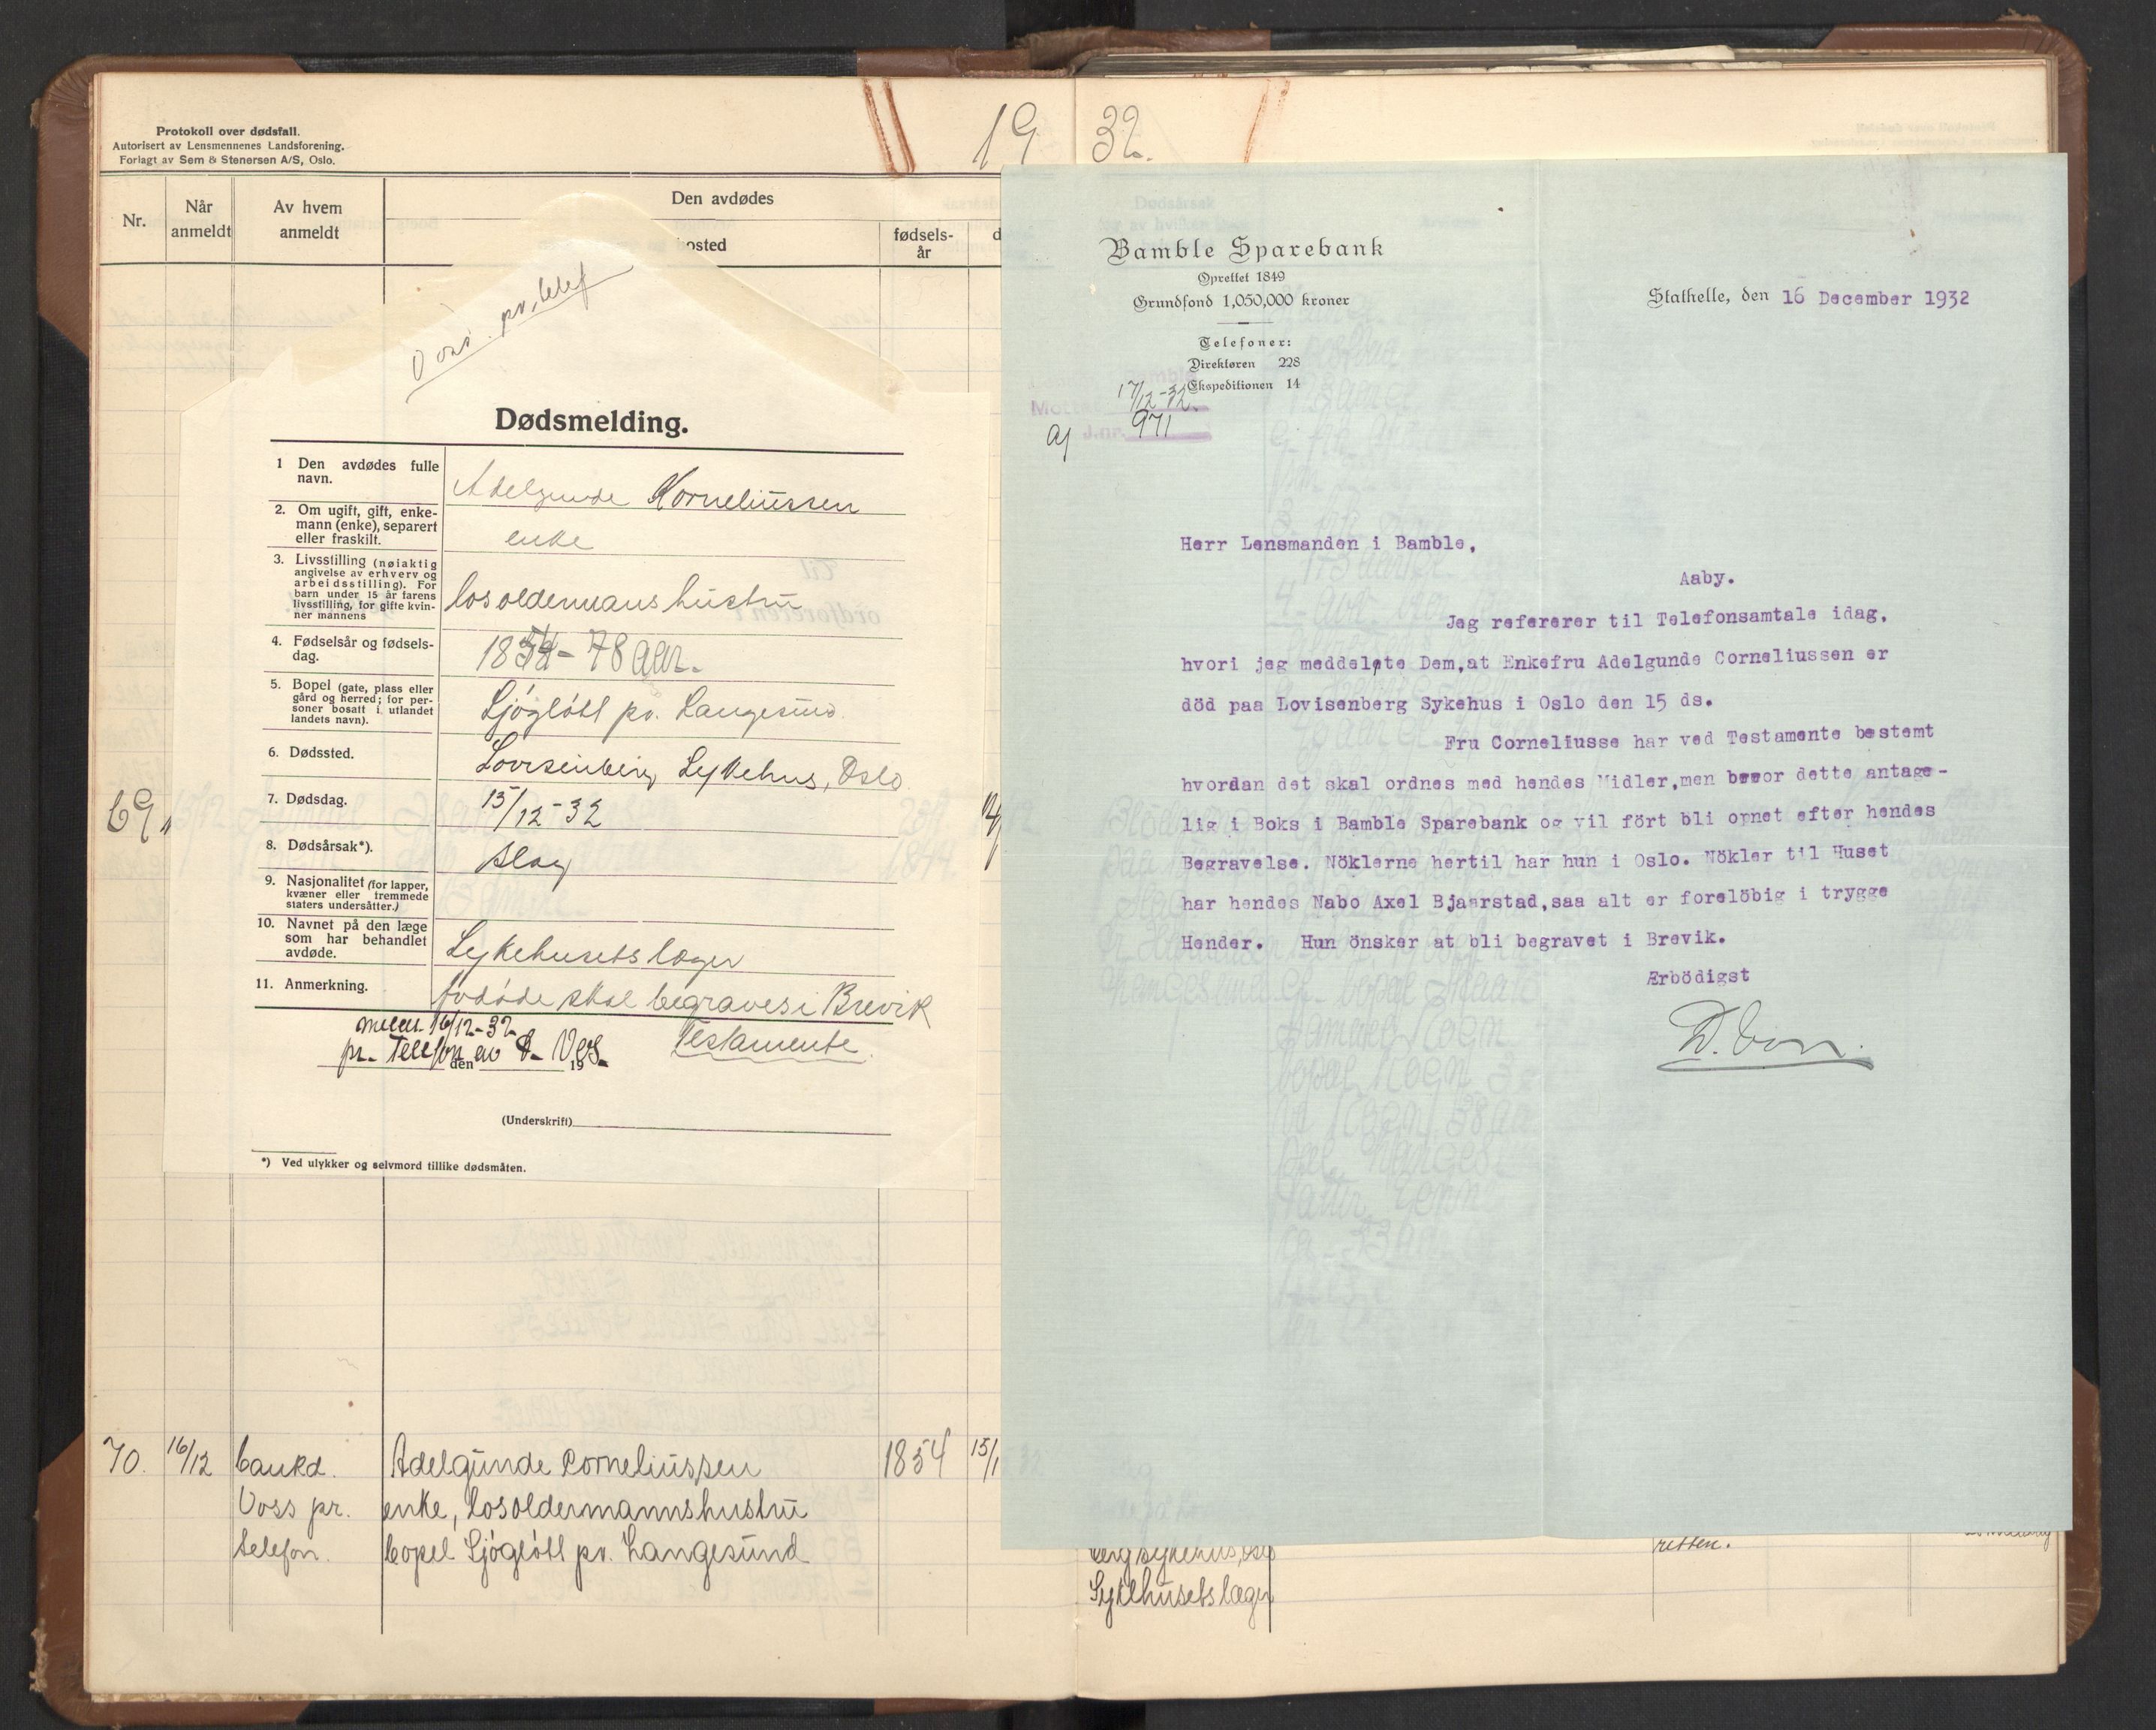 Protokoll over dødsfall.
Autorisert av Lensmennenes Landsforening.
Forlagt av Sem & Stenersen A/S, Oslo.
19 32.
Nr.
Når
anmeldt
Av hvem
anmeldt
Den avdødes
bosted
fødsels-
år
d
69
70. 16/12 bankd. Adelgunde Corneliussen 1854 15/1
Voss pr. enke, losoldermannshustru
telefon. bopel Sjögløtt pr. Langesund
Voss. pr. telef
Dødsmelding.
1 Den avdødes fulle
navn.
Adelgunde Korneliussen
2. Om ugift, gift, enke-
mann (enke), separert
eller fraskilt.
enke
3. Livsstilling (nøiaktig
angivelse av erhverv og
arbeidsstilling). For
barn under 15 år farens
livsstilling, for gifte kvin-
ner mannens
losoldermanshustru
4. Fødselsår og fødsels-
dag.
1854 - 78 aar.
5. Bopel (gate, plass eller
gård og herred; for per-
soner bosatt i utlandet
landets navn).
Sjögløtt pr. Langesund.
6. Dødssted.
Lovisenberg Sykehus, Oslo
7. Dødsdag.
15/12-32
8. Dødsårsak*).
slag
9. Nasjonalitet (for lapper,
kvæner eller fremmede
staters undersåtter.)
10. Navnet på den læge
som har behandlet
avdøde.
Sykehusets læger
11. Anmerkning.
Avdøde skal begraves i Brevik
Testamente.
16/12-32
pr. Telefon av D. Vos.
den 19
(Underskrift)
*) Ved ulykker og selvmord tillike dødsmåten.
Bamble Sparebank
Oprettet 1849
Grundfond 1,050,000 kroner
Telefoner:
Direktøren 228
Ekspeditionen 14
Stathelle, den 16 December 1932
17/12-32.
J.nr. 971
Herr Lensmanden i Bamble,
Aaby.
Jeg refererer til Telefonsamtale idag,
hvori jeg meddeløte Dem,at Enkefru Adelgunde Corneliussen er
död paa Lovisenberg Sykehus i Oslo den 15 ds.
Fru Corneliusse har ved Testamente bestemt
hvordan det skal ordnes med hendes Midler,men beror dette antage-
lig i Boks i Bamble Sparebank og vil fört bli ornet efter hendes
Begravelse. Nöklerne hertil har hun i Oslo. Nökler til Huset
har hendes Nabo Axel Bjaarstad,saa alt er forelöbig i trygge
Hender. Hun önsker at bli begravet i Brevik.
Ærbödigst
D. Voss.
berg sykehus, Oslo
retten.
Sykehusets læger